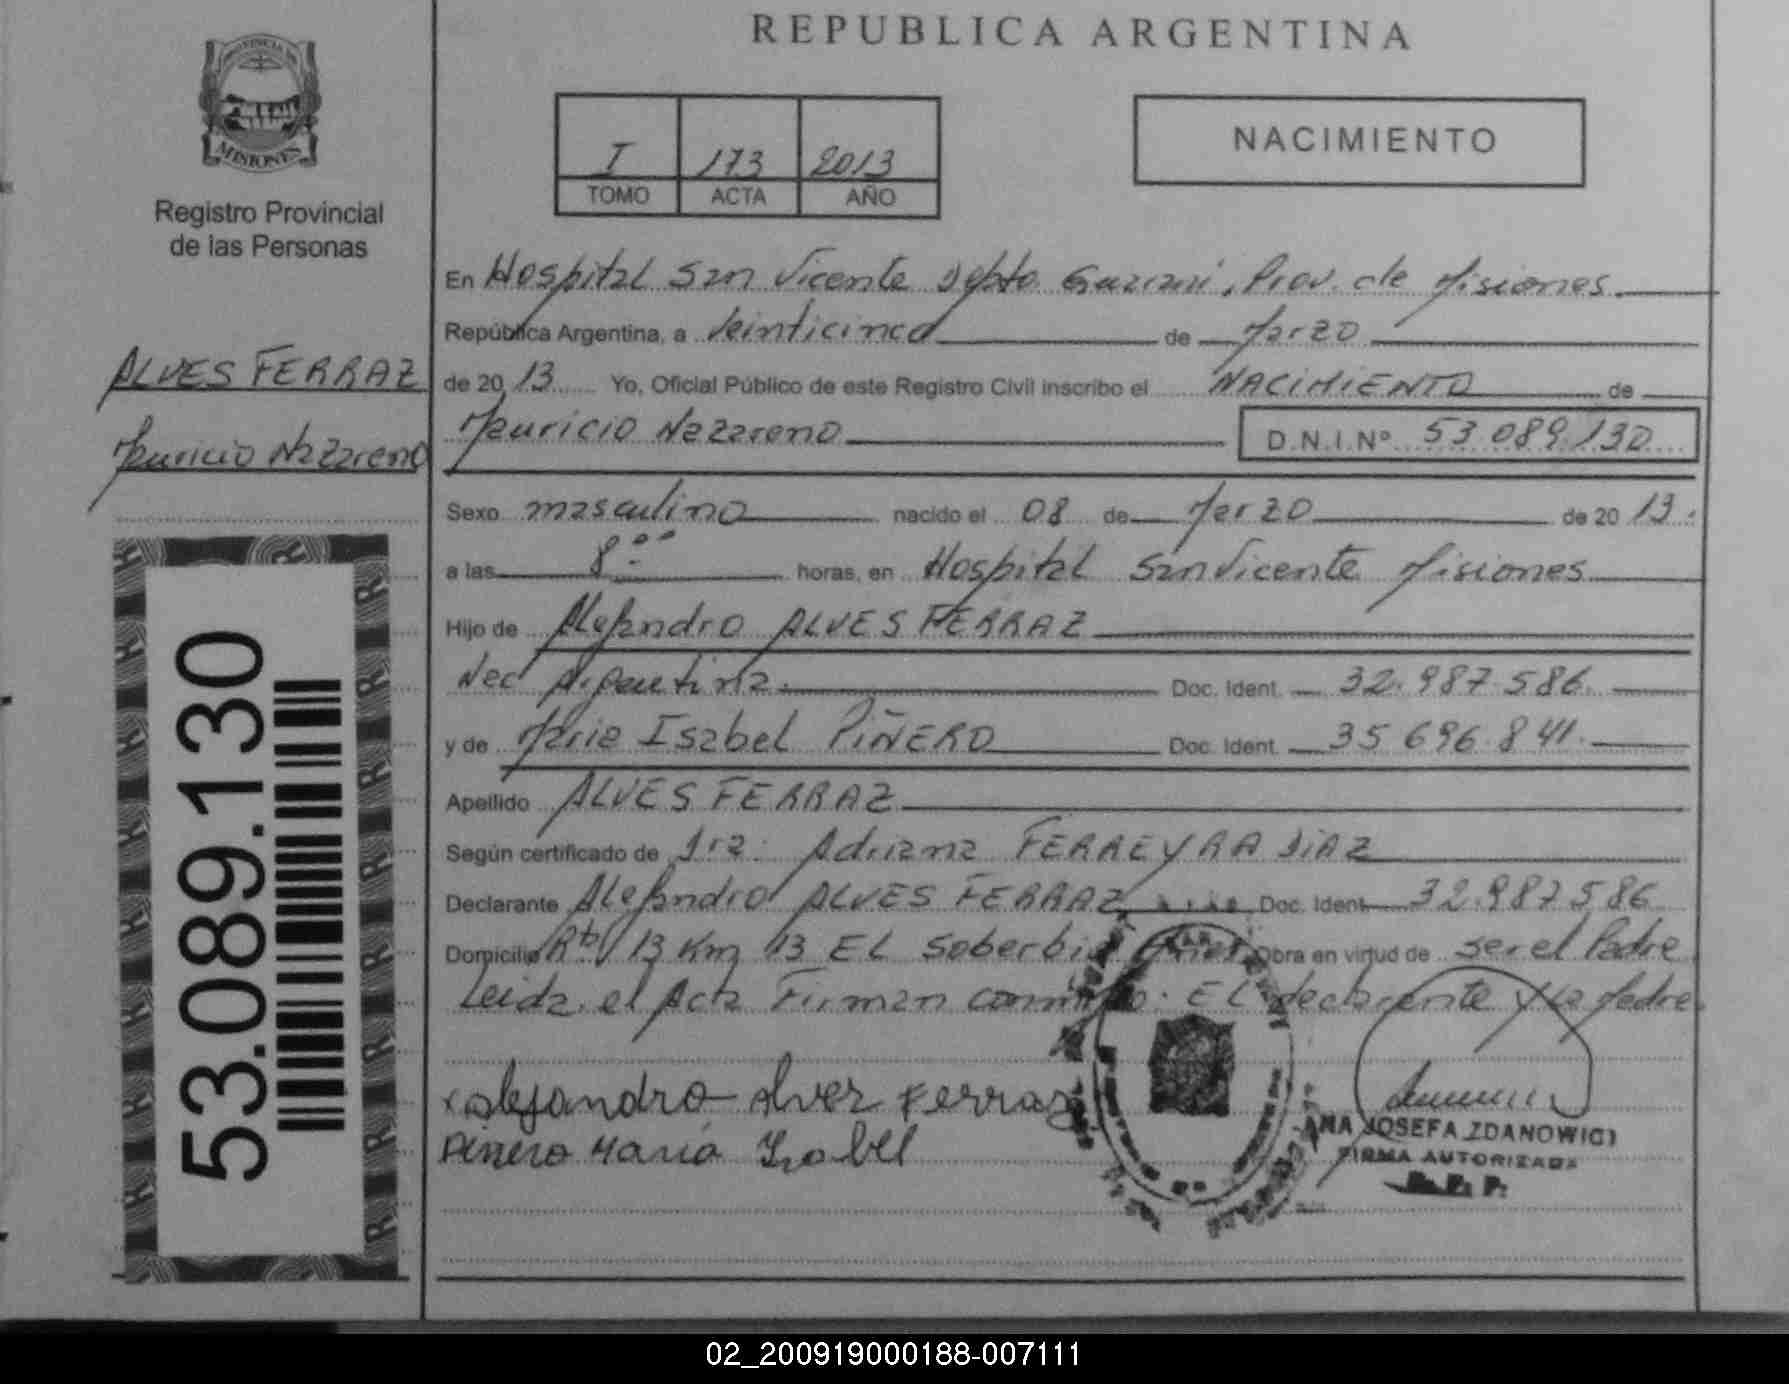 REPUBLICA ARGENTINA
PROVINCIA DE
MISIONES
Registro Provincial
de las Personas
I 173 2013
TOMO ACTA AÑO
NACIMIENTO
ALVES FERRAZ
Mauricio Nazareno
53.089.130
En Hospital San Vicente Depto Guarani, Prov. de Misiones.
República Argentina, a Veinticinco de Marzo
de 20 13 Yo, Oficial Público de este Registro Civil inscribo el NACIMIENTO de
Mauricio Nazareno D.N.I.Nº 53.089.130
Sexo masculino nacido el 08 de Marzo de 20 13.
a las 8:00 horas, en Hospital San Vicente Misiones
Hijo de Alejandro ALVES FERRAZ
Nac Argentina. Doc. Ident. 32.987.586
y de Maria Isabel PIÑERO Doc. Ident. 35 696.841.
Apellido ALVES FERRAZ
Según certificado de Dra. Adriana FERREYRA DIAZ
Declarante Alejandro ALVES FERRAZ Doc. Ident. 32.987.586
Domicilio 13 Km 13 EL Soberbio Obra en virtud de ser el Padre
Leida el Acta Firman conmigo: EL declarante y La Madre.
Alejandro Alvez Ferraz
Piñero Maria Isabel
ANA JOSEFA ZDANOWICZ
FIRMA AUTORIZADA
R. P. P.
02_200919000188-007111